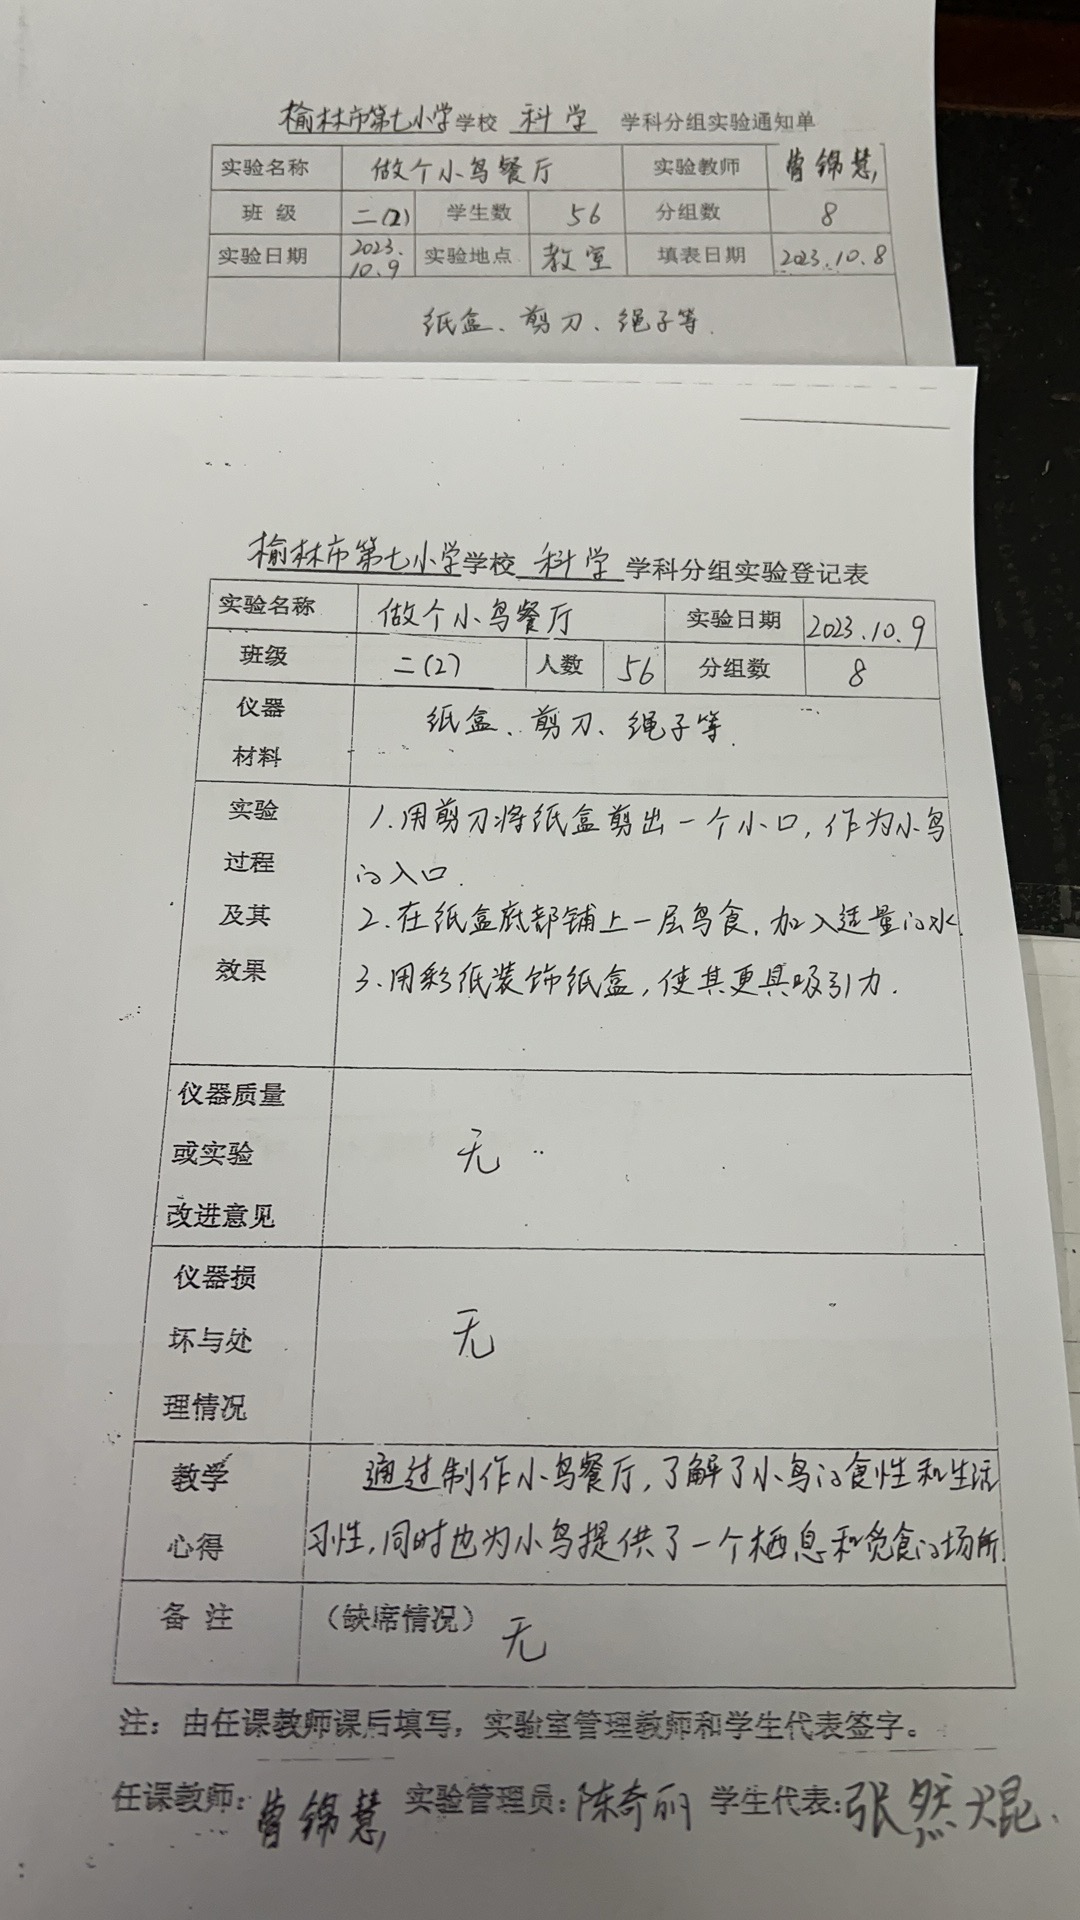 榆林市第七小学学校 科学 学科分组实验通知单
实验名称 做个小鸟餐厅 实验教师 曹锦慧
班 级 二(2) 学生数 56 分组数 8
实验日期 2023.10.9 实验地点 教室 填表日期 2023.10.8
纸盒、剪刀、绳子等.
榆林市第七小学学校 科学 学科分组实验登记表
实验名称 做个小鸟餐厅 实验日期 2023.10.9
班级 二(2) 人数 56 分组数 8
仪器 纸盒、剪刀、绳子等.
材料
实验 1.用剪刀将纸盒剪出一个小口,作为小鸟
过程 的入口.
及其 2.在纸盒底部铺上一层鸟食,加入适量的水.
效果 3.用彩纸装饰纸盒,使其更具吸引力.
仪器质量
或实验 无
改进意见
仪器损
坏与处 无
理情况
教学 通过制作小鸟餐厅,了解了小鸟的食性和生活
心得 习性,同时也为小鸟提供了一个栖息和觅食的场所.
备 注 （缺席情况） 无
注：由任课教师课后填写，实验室管理教师和学生代表签字。
任课教师：曹锦慧 实验管理员：陈奇丽 学生代表：张然焜